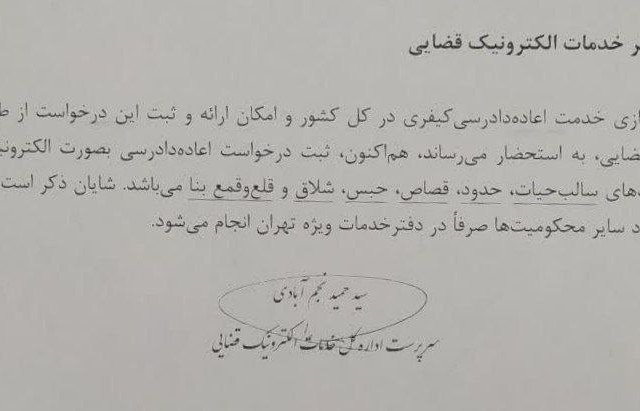 ر خدمات الکترونیک قضایی
ازی خدمت اعاده‌دادرسی‌کیفری در کل کشور و امکان ارائه و ثبت این درخواست از ط
ضایی، به استحضار می‌رساند، هم‌اکنون، ثبت درخواست اعاده‌دادرسی بصورت الکترونی
دهای سالب‌حیات، حدود، قصاص، حبس، شلاق و قلع‌وقمع بنا می‌باشد. شایان ذکر است
د سایر محکومیت‌ها صرفاً در دفترخدمات ویژه تهران انجام می‌شود.
سید حمید نجم آبادی
سرپرست اداره کل خدمات الکترونیک قضایی